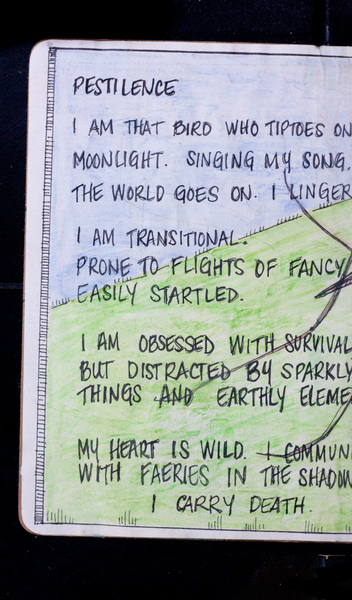 PESTILENCE
I AM THAT BIRD WHO TIPTOES ON
MOONLIGHT. SINGING MY SONG.
THE WORLD GOES ON. I LINGER
I AM TRANSITIONAL.
PRONE TO FLIGHTS OF FANCY
EASILY STARTLED.
I AM OBSESSED WITH SURVIVAL
BUT DISTRACTED BY SPARKLY
THINGS AND EARTHLY ELEME
MY HEART IS WILD. I COMMUN
WITH FAERIES IN THE SHADOW
I CARRY DEATH.